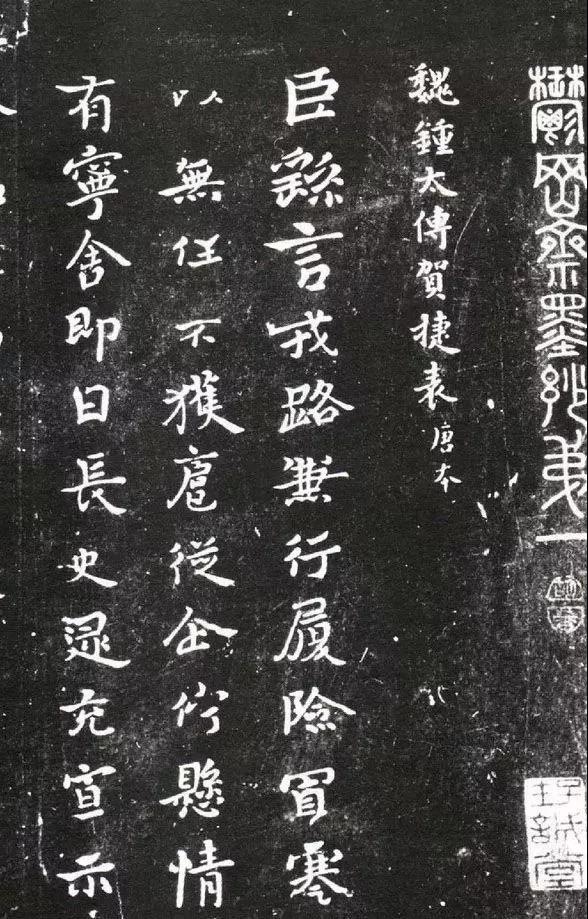 鬱岡齋墨玅弟一
魏鍾太傅賀捷表唐本
臣繇言戎路兼行履險冒寒
以無任不獲扈從企佇懸情
有寧舍即日長史逯充宣示